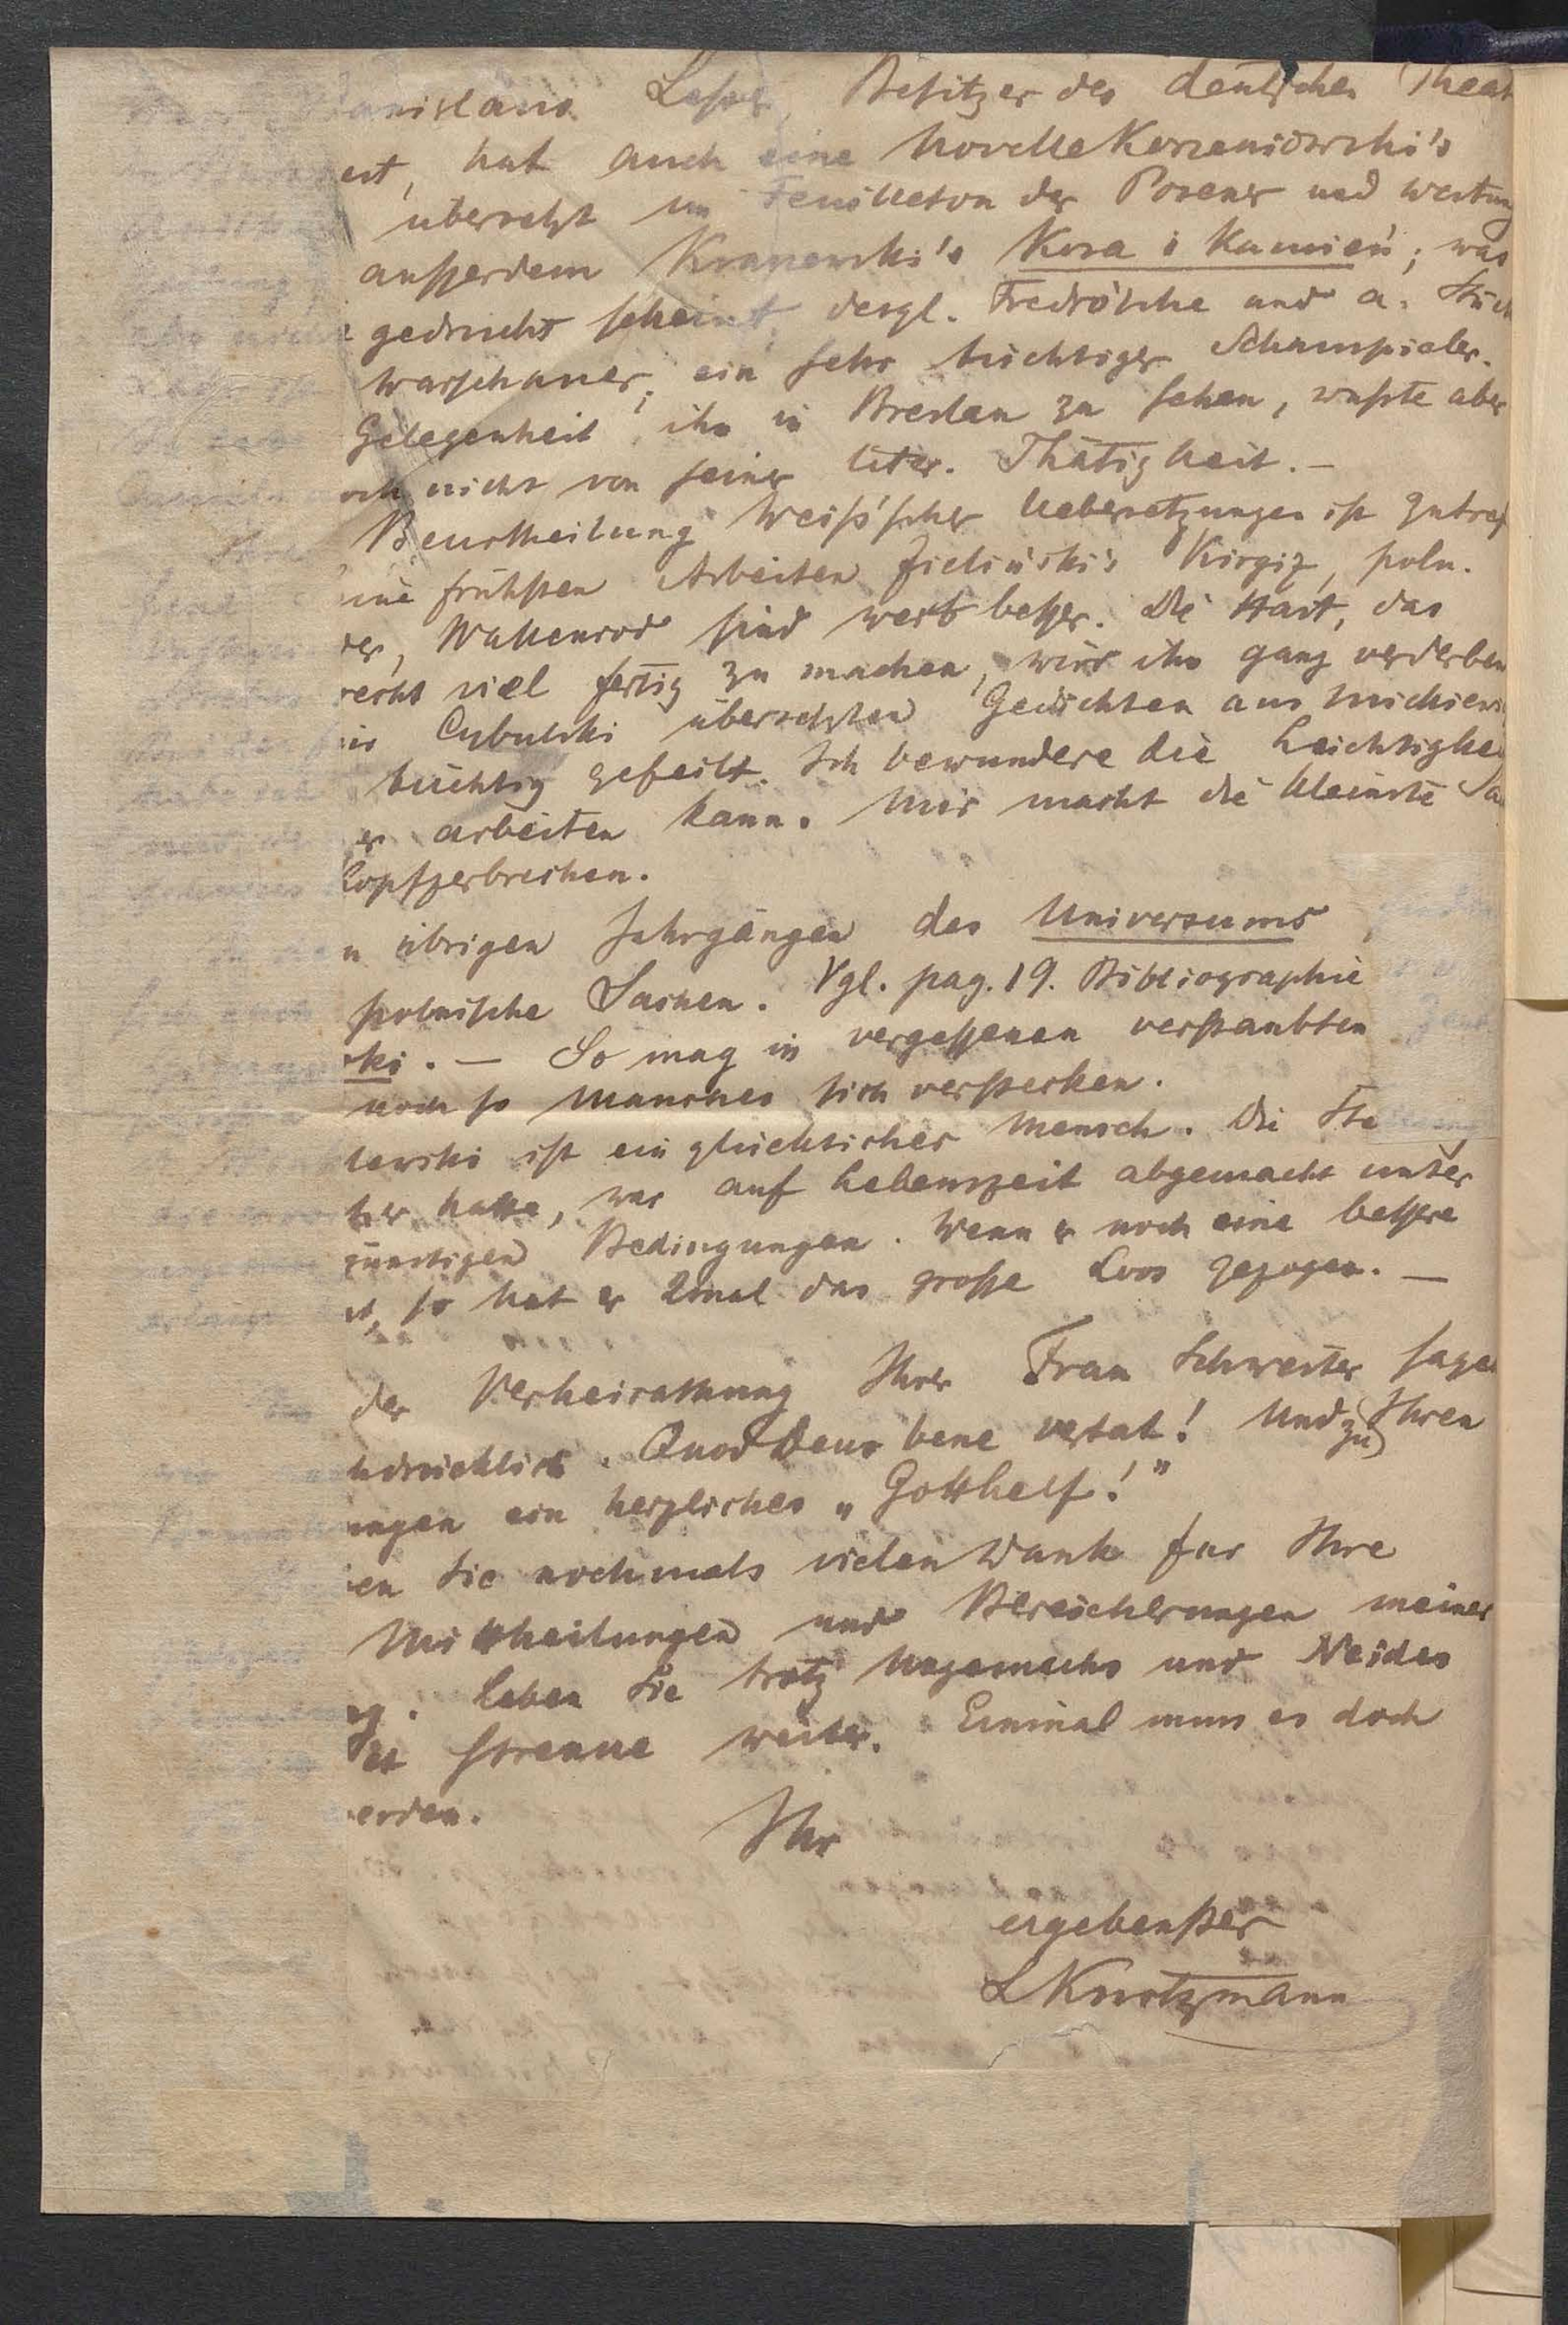 anislaus Lesser, Besitzer des deutschen Theat
ert, hat auch eine Novelle Korzeniowski's
übersetzt im Feuilleton der Posener und
ausserdem Kraszewski's Kosa i Kamień; was
gedruckt scheint, desgl. Fredro'sche und a. Stück
Warschauer, ein sehr tüchtiger Schauspieler.
Gelegenheit, ihn in Breslau zu sehen, wußte aber
och nicht von seiner liter. Thätigkeit. –
Beurtheilung Weiß'scher Uebersetzungen ist zutref
eine frühsten Arbeiten Zieliński's Kirgiz, poln.
der, Wallenrod sind weit besser. Die Hast, das
recht viel fertig zu machen, wird ihn ganz verderben
in Cybulski übersetzten Gedichten aus Mickiewi
tüchtig gefeilt. Ich bewundere die Leichtigkei
er arbeiten kann. Mir macht die kleinste Sa
Kopfzerbrechen.
n übrigen Jahrgängen des Universums
polnische Sachen. Vgl. pag. 19. Bibliographie
ski. – So mag in vergessenen verstaubten
noch so Manches sich verstecken.
lewski ist ein glücklicher Mensch. Die Ste
her hatte, war auf Lebenszeit abgemacht unter
günstigen Bedingungen. Wenn er noch eine bessere
et, so hat er 2mal das große Loos gezogen. –
der Verheirathung Ihrer Frau Schwester sage
hdrücklich. Quod Deus bene vertat! Und zu Ihren
ungen ein herzliches „Gotthelf!"
en Sie nochmals vielen Dank für Ihre
Mittheilungen und Bereicherungen meiner
ng. Leben Sie trotz Ungemachs und Neides
et strenue weiter. Einmal muss es doch
erden.
Ihr
ergebenster
L Kurtzmann